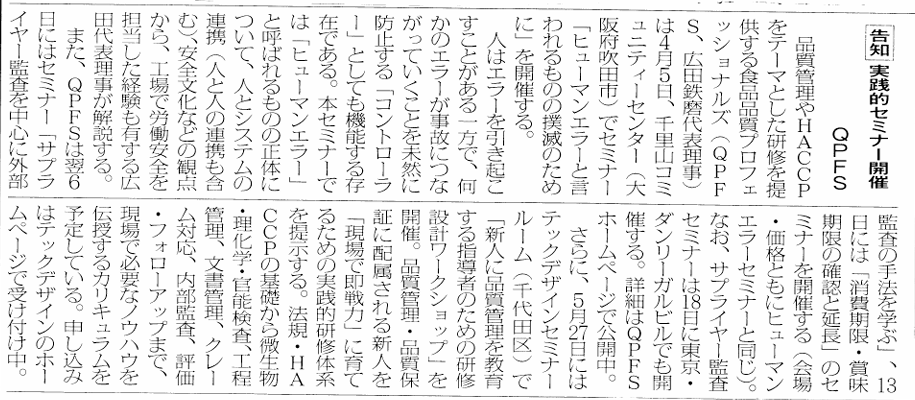 告知 実践的セミナー開催
QPFS
品質管理やHACCP
をテーマとした研修を提
供する食品品質プロフェ
ッショナルズ（QPF
S、広田鉄磨代表理事）
は4月5日、千里山コミ
ュニティーセンター（大
阪府吹田市）でセミナー
「ヒューマンエラーと言
われるものの撲滅のため
に」を開催する。
人はエラーを引き起こ
すことがある一方で、何
かのエラーが事故につな
がっていくことを未然に
防止する「コントローラ
ー」としても機能する存
在である。本セミナーで
は「ヒューマンエラー」
と呼ばれるものの正体に
ついて、人とシステムの
連携（人と人の連携も含
む）、安全文化などの観点
から、工場で労働安全を
担当した経験も有する広
田代表理事が解説する。
また、QPFSは翌6
日にはセミナー「サプラ
イヤー監査を中心に外部
監査の手法を学ぶ」、13
日には「消費期限・賞味
期限の確認と延長」のセ
ミナーを開催する（会場
・価格ともにヒューマン
エラーセミナーと同じ）。
なお、サプライヤー監査
セミナーは18日に東京・
ダンリーガルビルでも開
催する。詳細はQPFS
ホームページで公開中。
さらに、5月27日には
テックデザインセミナー
ルーム（千代田区）で
「新人に品質管理を教育
する指導者のための研修
設計ワークショップ」を
開催。品質管理・品質保
証に配属される新人を
「現場で即戦力」に育て
るための実践的研修体系
を提示する。法規・HA
CCPの基礎から微生物
・理化学・官能検査、工程
管理、文書管理、クレー
ム対応、内部監査、評価
・フォローアップまで、
現場で必要なノウハウを
伝授するカリキュラムを
予定している。申し込み
はテックデザインのホー
ムページで受け付け中。